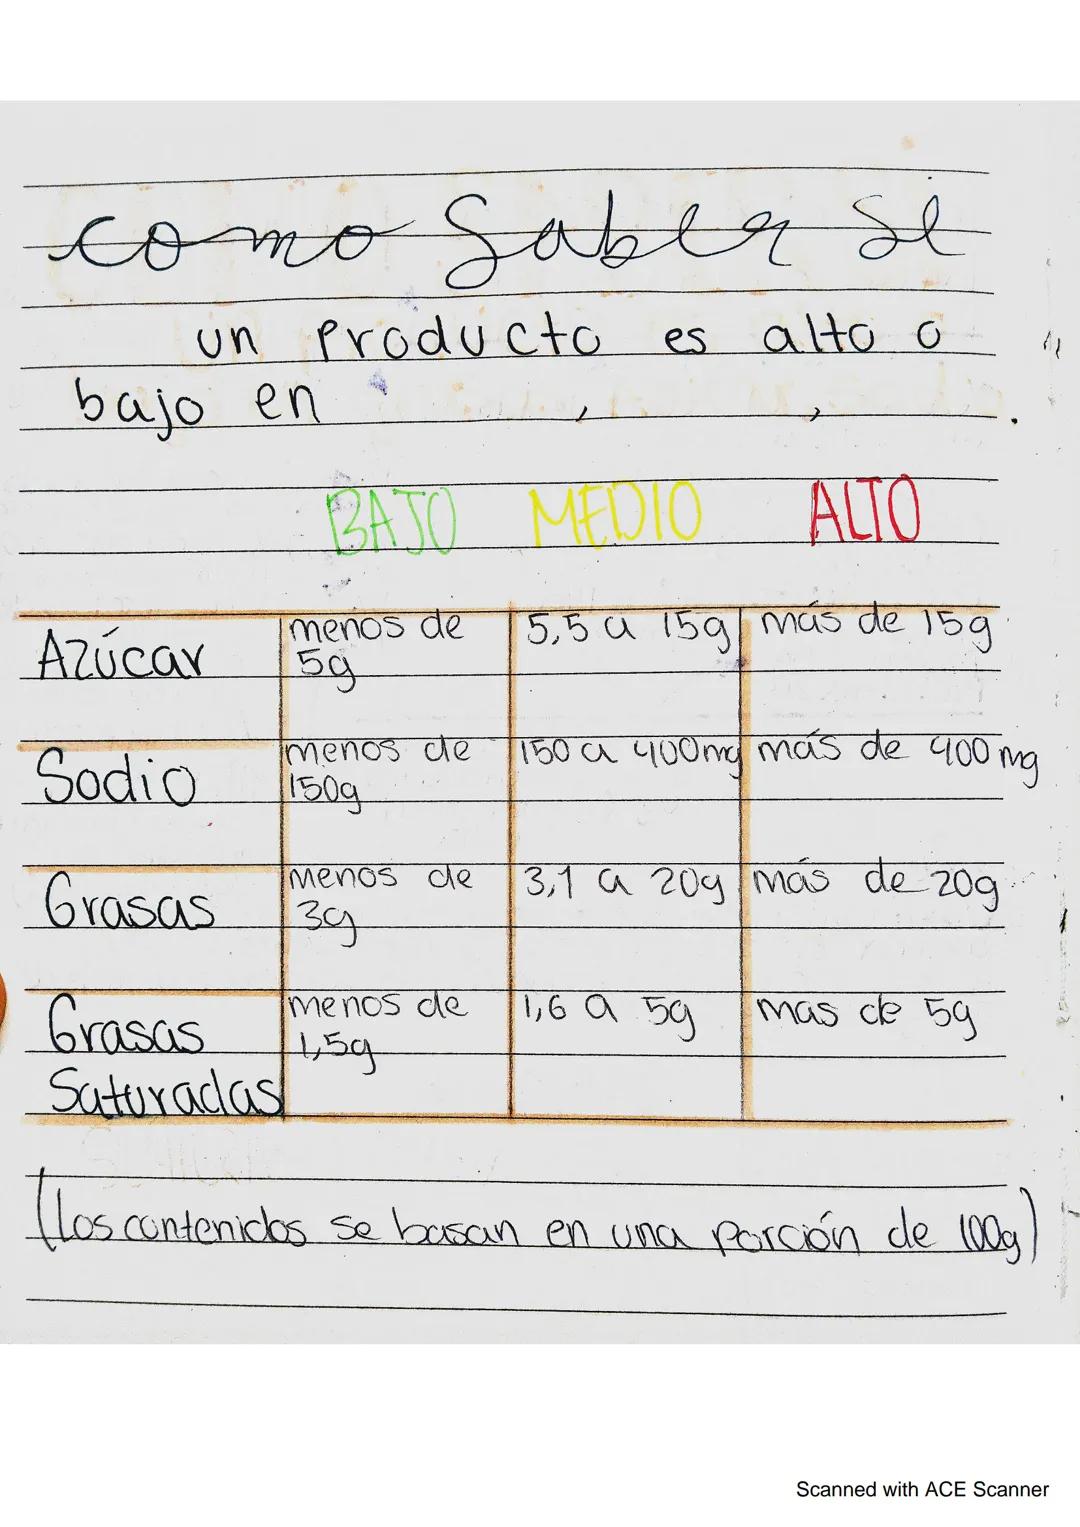 como Saber si
un Producto es alto o
bajo en , , .
BAJO MEDIO ALTO
Azúcar menos de 5,5 a 15g más de 15g
5g
Sodio menos de 150 a 400mg más de 400 mg
150g
Grasas menos de 3,1 a 20g más de 20g
3g
Grasas menos de 1,6 a 5g mas de 5g
Saturadas 1,5g
(los contenidos se basan en una porción de 100g)
Scanned with ACE Scanner